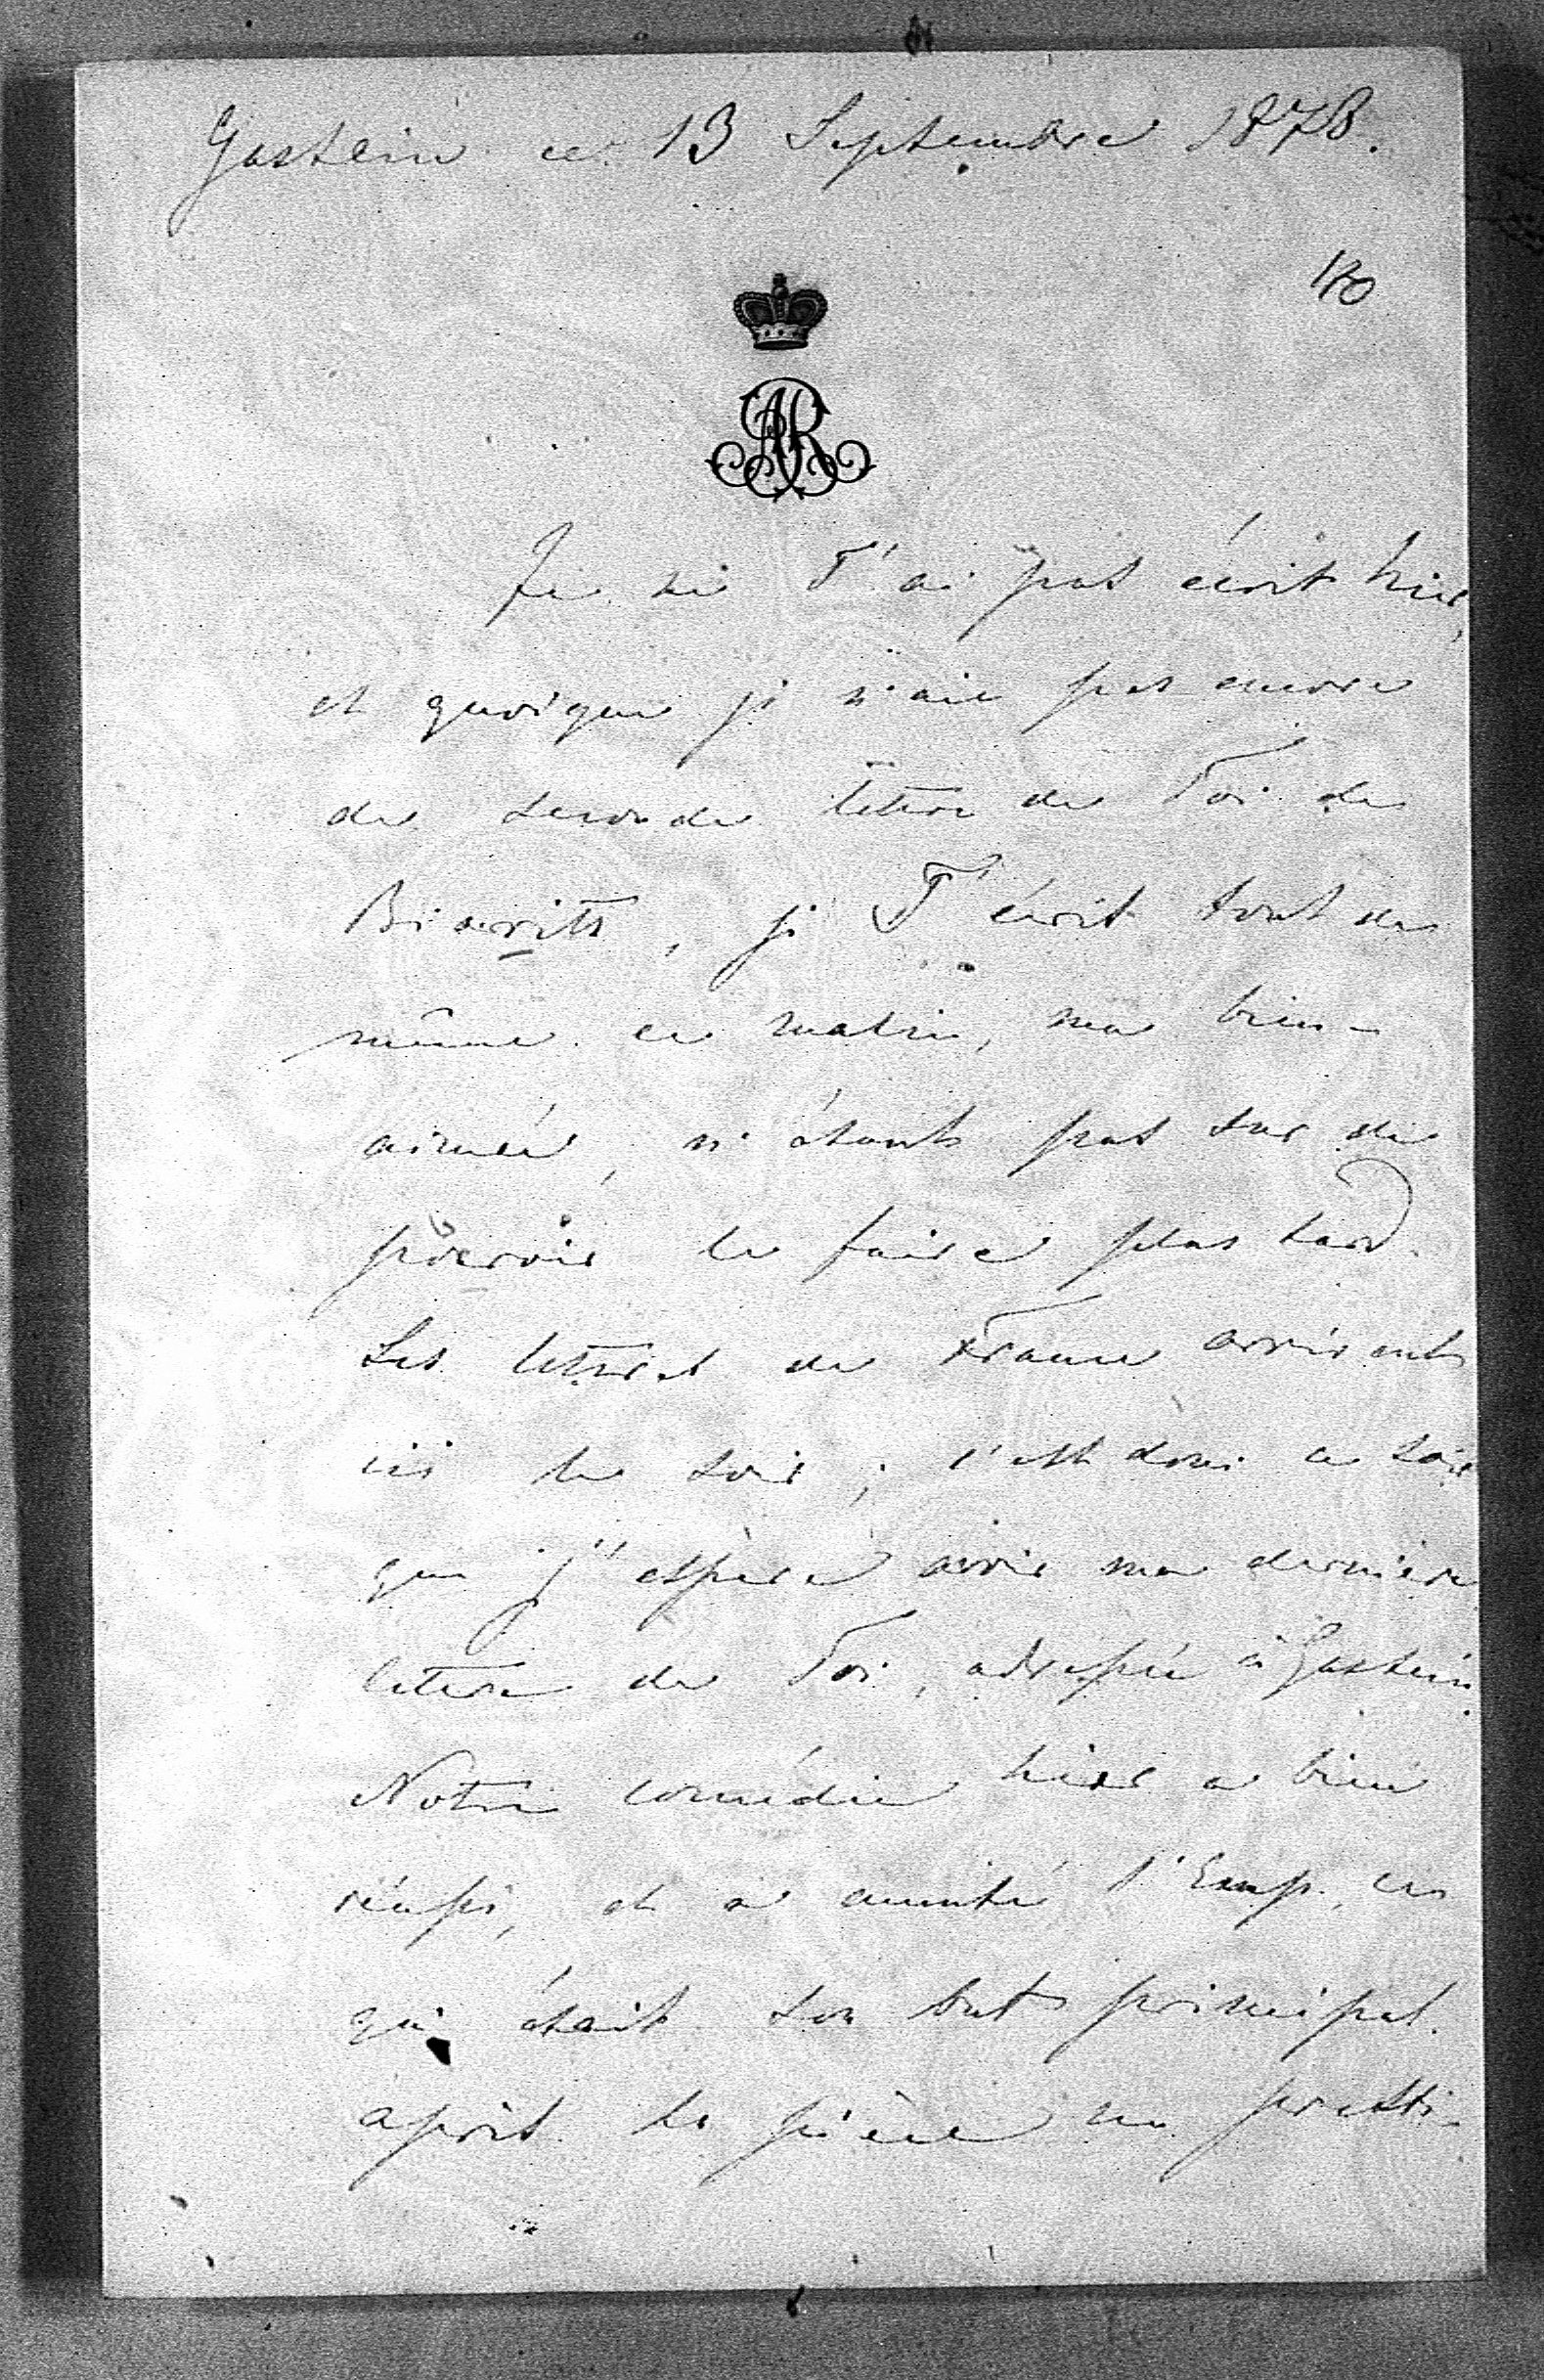 Gastein ce 13 Septembre 1878.
40
AR
Je ne T'ai pas écrit hier,
et quoique je n'aie pas encore
de seconde lettre de Toi de
Biarritz, je T'écrit tout de
même ce matin, ma bien-
aimée, n'étant pas sur de
pouvoir le faire plus tard.
Les lettres de France arrivent
ici le soir; c'est donc ce soir
que j'espère avoir ma dernière
lettre de Toi, adressée à Gastein.
Notre comédie hier a bien
réussi, et a amusé l'Emp., ce
qui était son but principal.
après la pièce un presti-